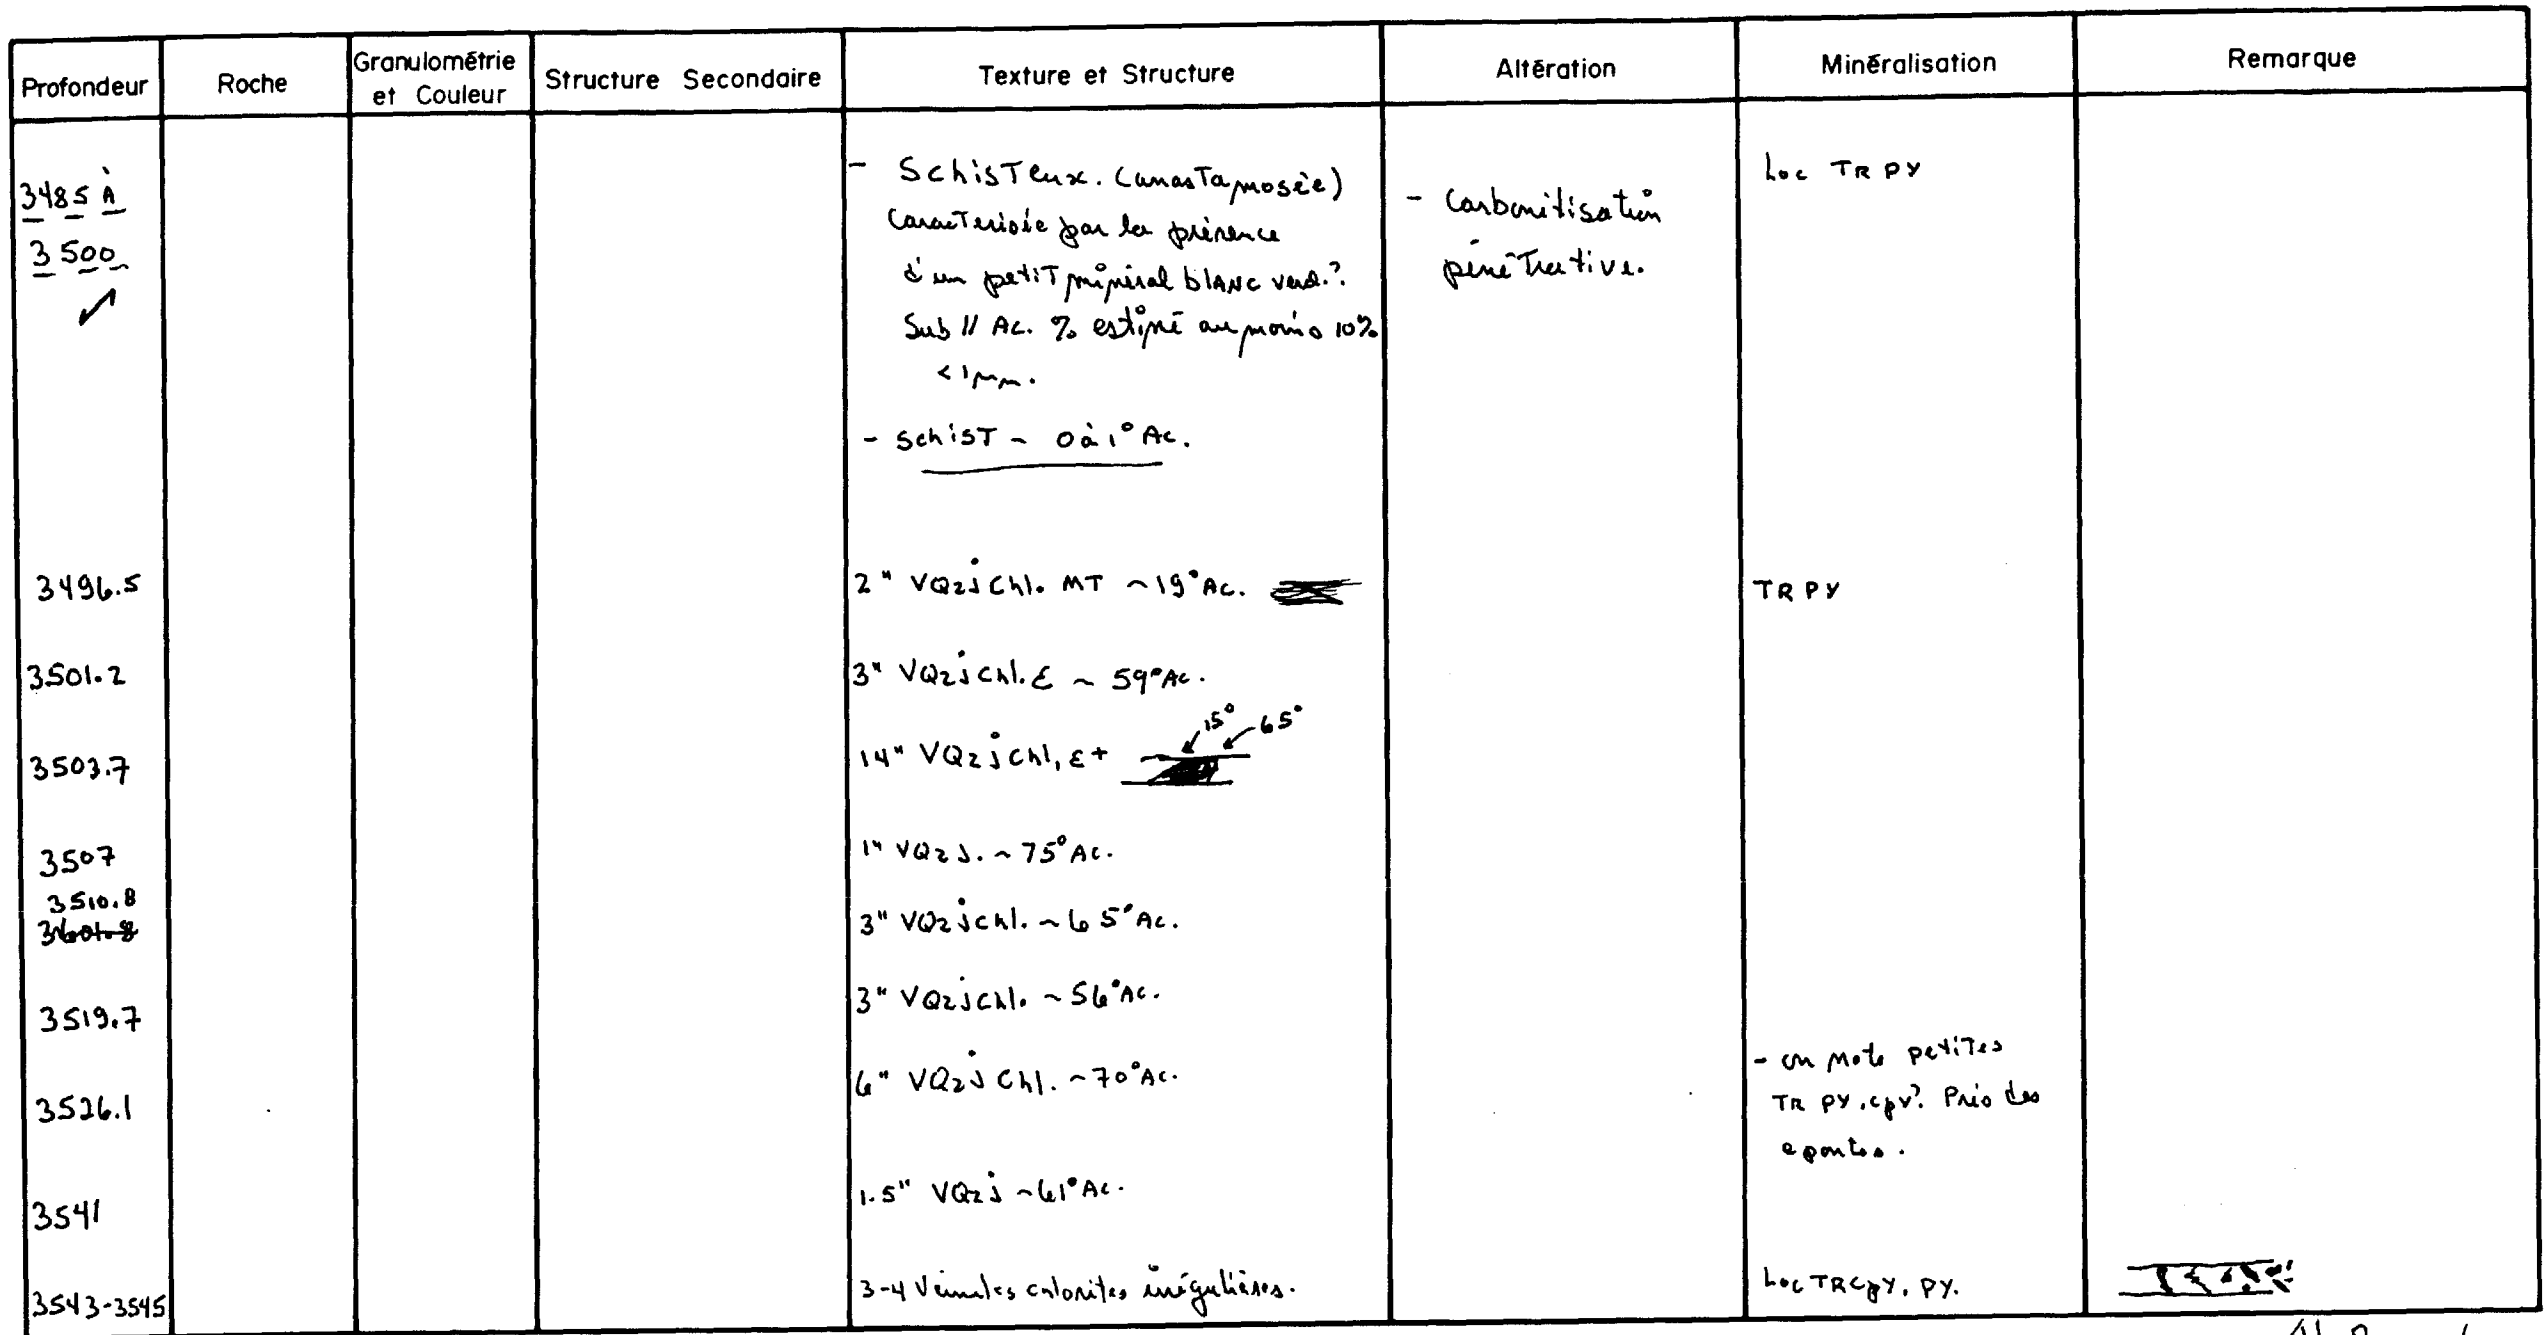 Profondeur Roche Granulométrie et Couleur Structure Secondaire Texture et Structure Altération Minéralisation Remarque
3485 À
3500
- SchisTeux. (anasTamosée)
caracTerisée par la présence
d'un petiT minéral blanc verd.?
Sub // Ac. % estimé au moins 10%
<1mm.
- schisT ~ 0 à 1° Ac.
- Carbonitisation
pénéTrative.
Loc TR PY
3496.5 2" VQzj Chl. MT ~19° Ac. TR PY
3501.2 3" VQzj Chl. ε ~ 59° Ac.
15° 65°
3503.7 14" VQzj Chl, ε+
3507 1" VQzj. ~75° Ac.
3510.8
3601.8
3" VQzj chl. ~65° Ac.
3519.7 3" VQzj chl. ~56° Ac.
3526.1 6" VQzj Chl. ~70° Ac.
- on note petiTes
TR PY, cpy? Près des
epontes.
3541 1.5" VQzj ~61° Ac.
3543-3545 3-4 Veinules chlorites irrégulières. Loc TR CPY, PY.